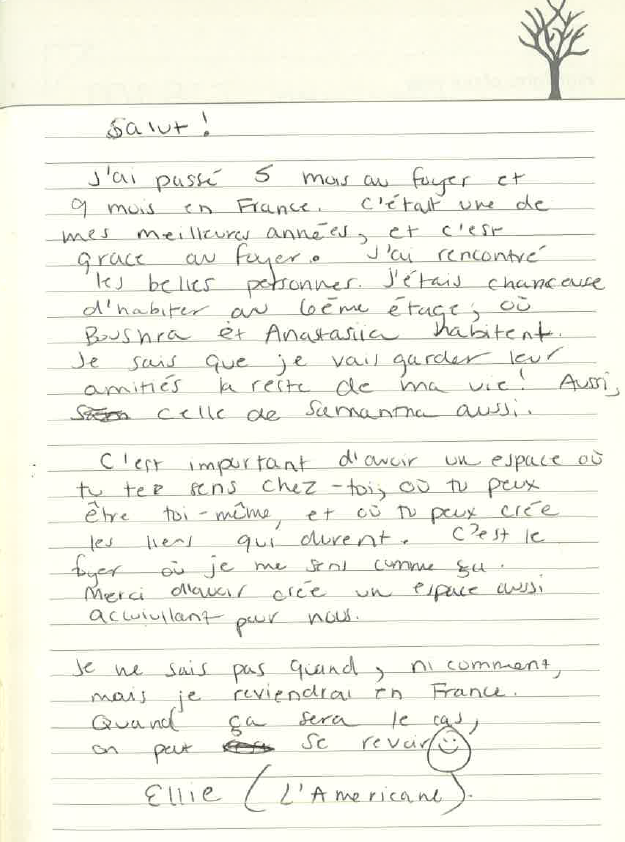 Salut !
J'ai passé 5 mois au foyer et
9 mois en France. C'était une de
mes meilleures années, et c'est
grace au foyer. J'ai rencontré
les belles personnes. J'étais chanceuse
d'habiter au 6ème étage, où
Boushra et Anastasiia habitent.
Je sais que je vais garder leur
amitiés la reste de ma vie! Aussi,
celle de Samantha aussi.
C'est important d'avoir un espace où
tu tes sens chez-toi, où tu peux
être toi-même, et où tu peux crée
les liens qui durent. C'est le
foyer où je me sens comme ça.
Merci d'avoir crée un espace aussi
accuivllant pour nous.
Je ne sais pas quand, ni comment,
mais je reviendrai en France.
Quand ça sera le cas,
on peut se revoir
Ellie (L'Americane).